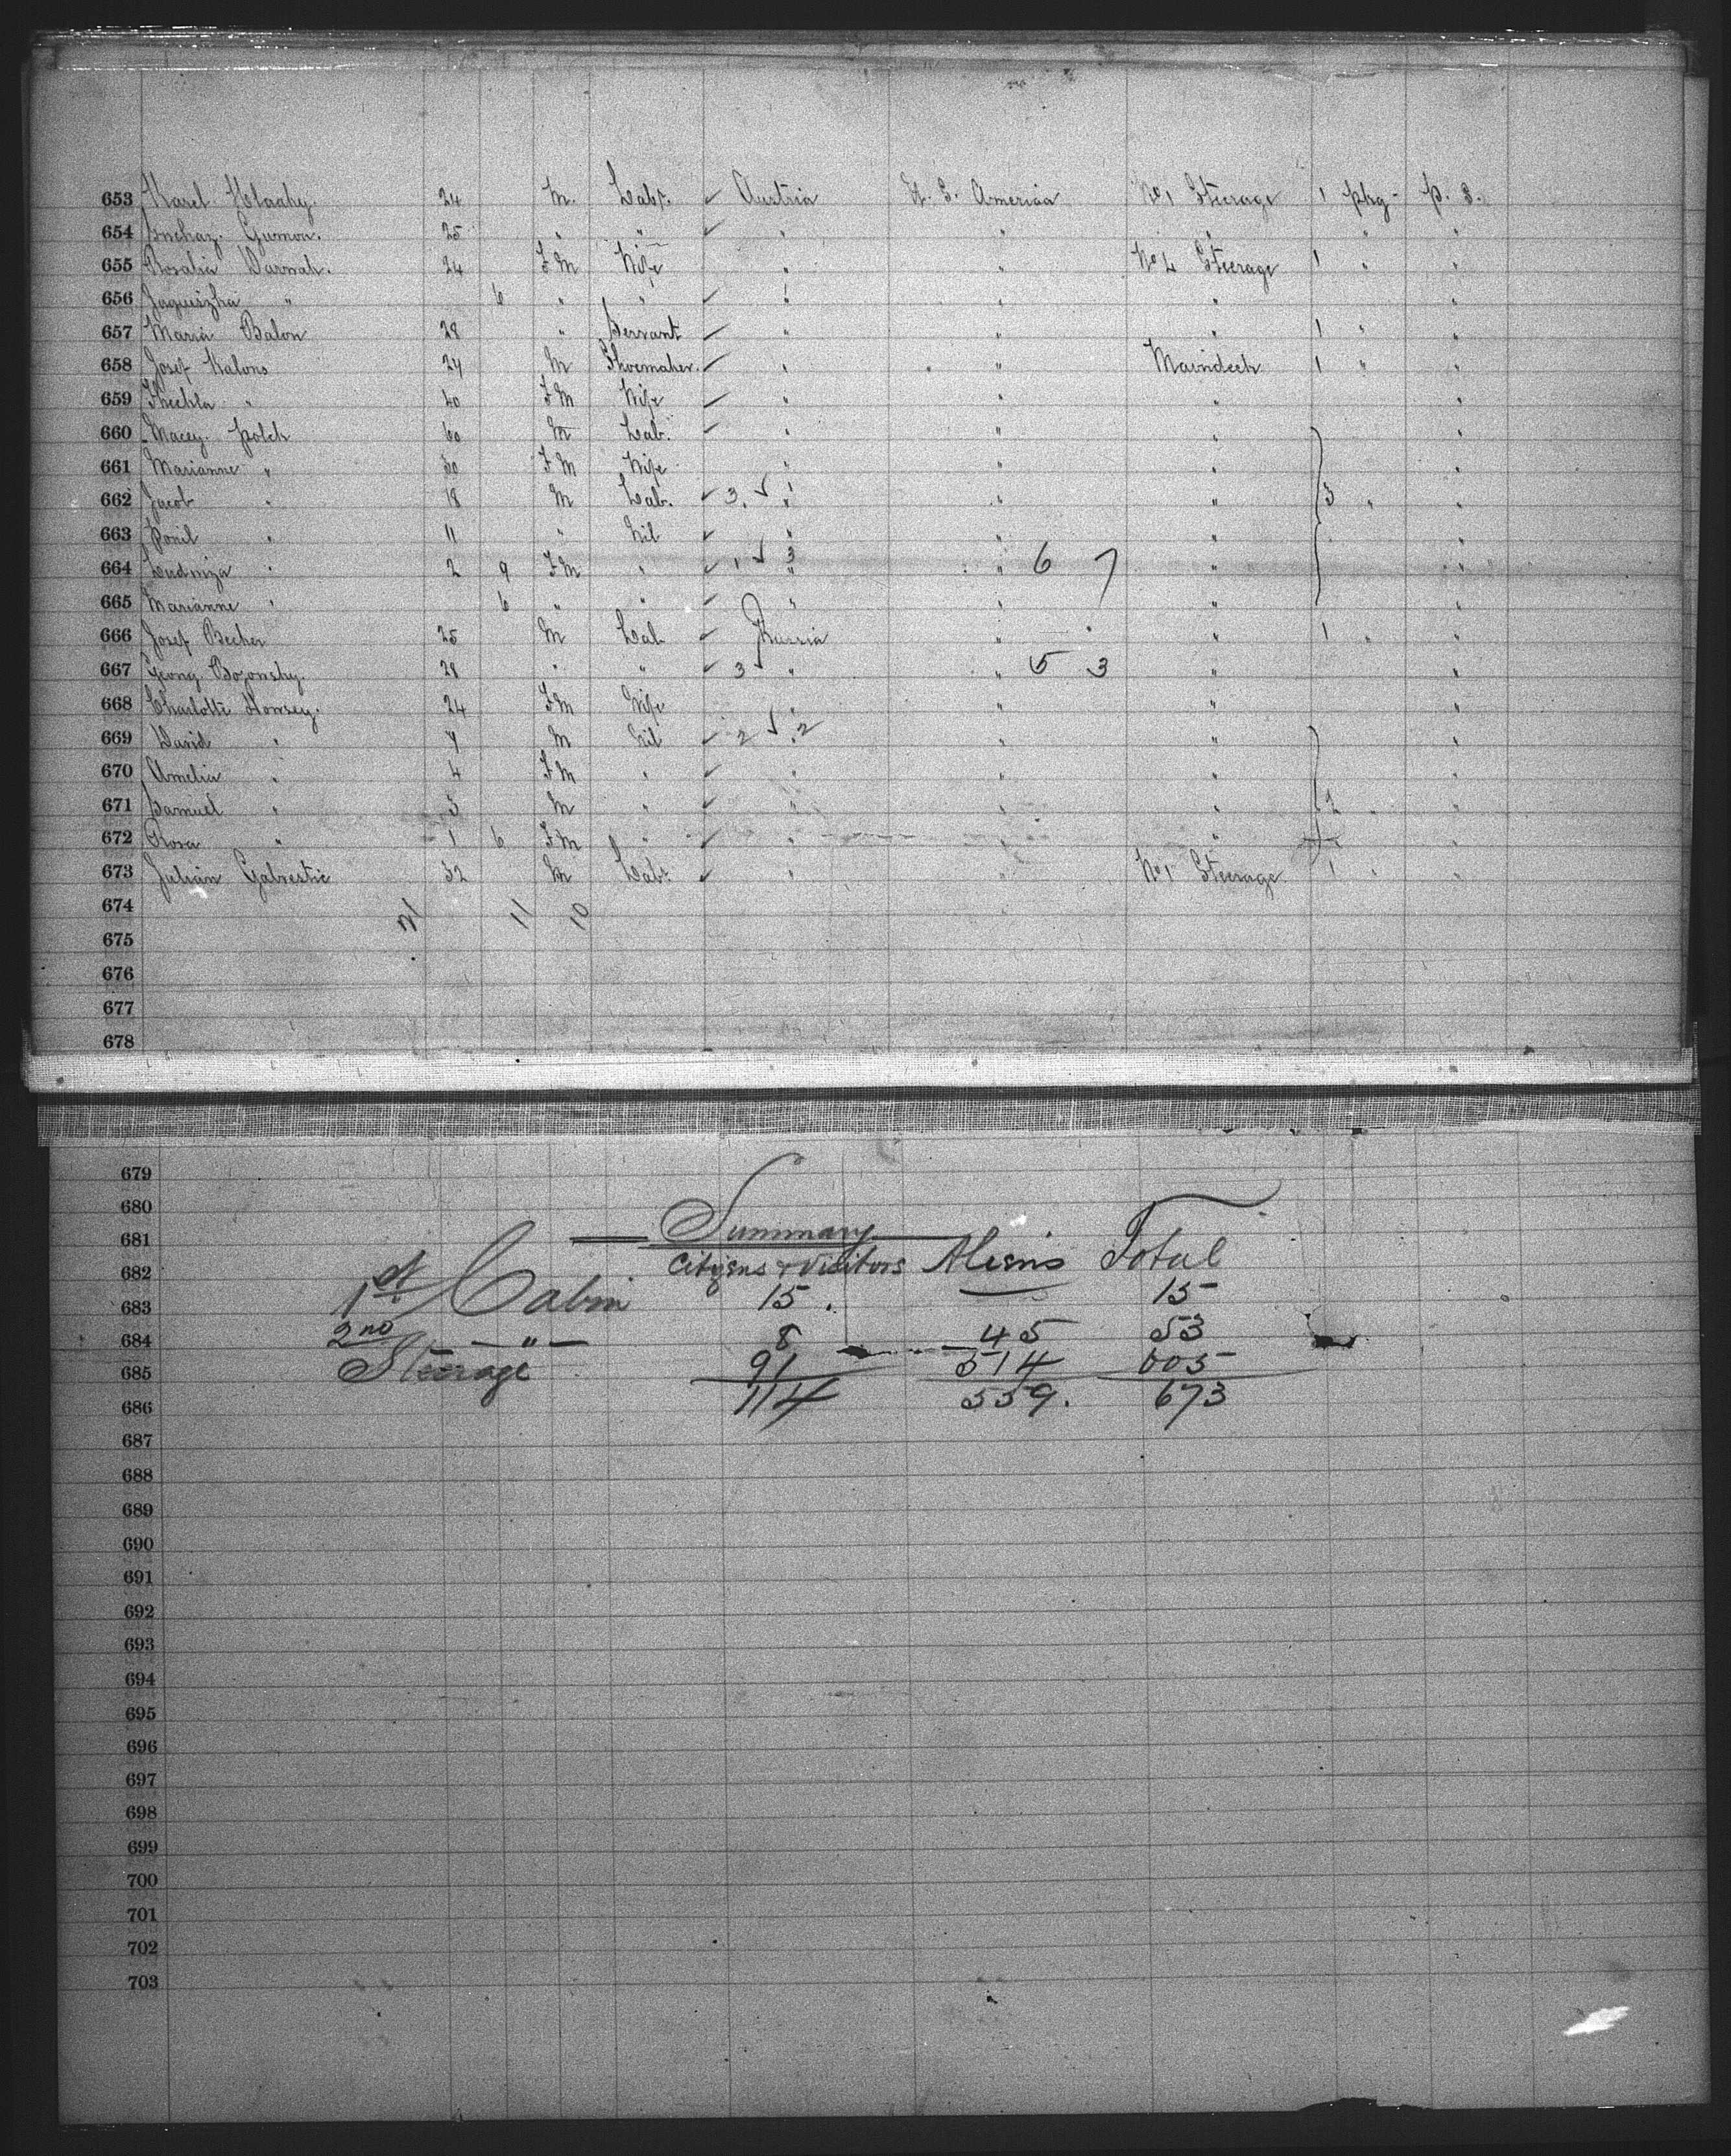 653 Karel Hlaahy. 24 M. Labr. ✓ Austria U. S. America No 1 Steerage 1 pkg - P. S.
654 Gumon. 25 " " ✓ " " " " "
655 Rosalia Warnah. 24 F M Wife " " No 4 Steerage 1 " "
656 Jaguiszka " 6 " " ✓ " " " "
657 Maria Balon 28 " Servant ✓ " " " 1 " "
658 Josef Kalons 24 M Shoemaker. ✓ " " Maindeck 1 " "
659 Theckla " 40 F M Wife ✓ " " " "
660 Macey. Polek 60 M Lab. ✓ " " " "
661 Marianne " 50 F M Wife " " " "
662 Jacob " 18 M Lab. ✓ 3. ✓ " " " 3 " "
663 " 11 " Nil ✓ " " " "
664 Ludwiza " 2 9 F M " ✓ 1 ✓ 3 " 6 7 " "
665 Marianne " 6 " " ✓ " " " "
666 Josef Becker 25 M Lab ✓ Russia " " 1 " "
667 Georg. Bozonsky. 28 " " ✓ 3 ✓ " " 5 3 " "
668 Charlotte 24 F M Wife " " " "
669 David " 7 M Nil ✓ 2 ✓ 2 " " "
670 Amelia " 4 F M " ✓ " " " "
671 Samuel " 3 M " ✓ " " " 2 " "
672 Rosa " 1 6 F M " ✓ " " " "
673 Julian Galrestic 32 M Labr. ✓ " " No 1 Steerage 1 " "
674 21 11 10
675
676
677
678
679
680
681 Summary
682 Citizens & Visitors Aliens Total
683 1st Cabin 15. — 15
684 2nd — " — 8 45 53
685 Steerage 91 514 605
686 114 559. 673
687
688
689
690
691
692
693
694
695
696
697
698
699
700
701
702
703